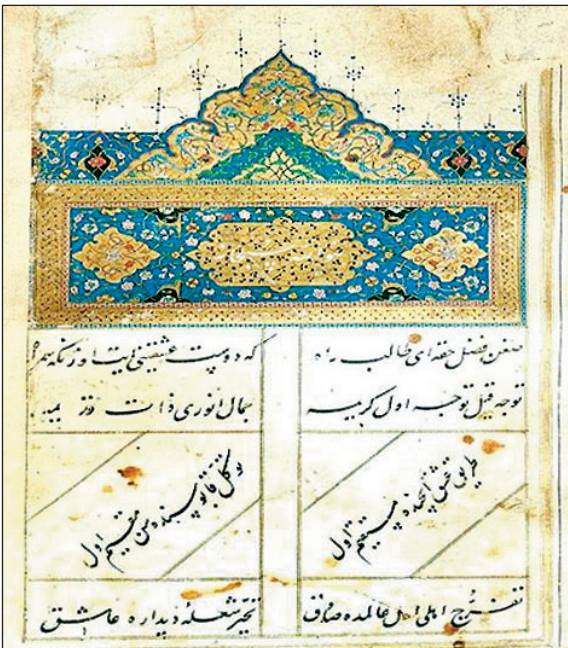 صغن فضل حقه ای طالب راه
که دوست عشقنی ایت اوزکه همراه
توجه قیل توجه اول کریمه
جمال انوری ذات
طریق عشق ایچنده مستقیم اول
توکل قاپوسنده سن مقیم اول
تفرج اهلی اول عالمده صادق
شعلهٔ دیداره عاشق